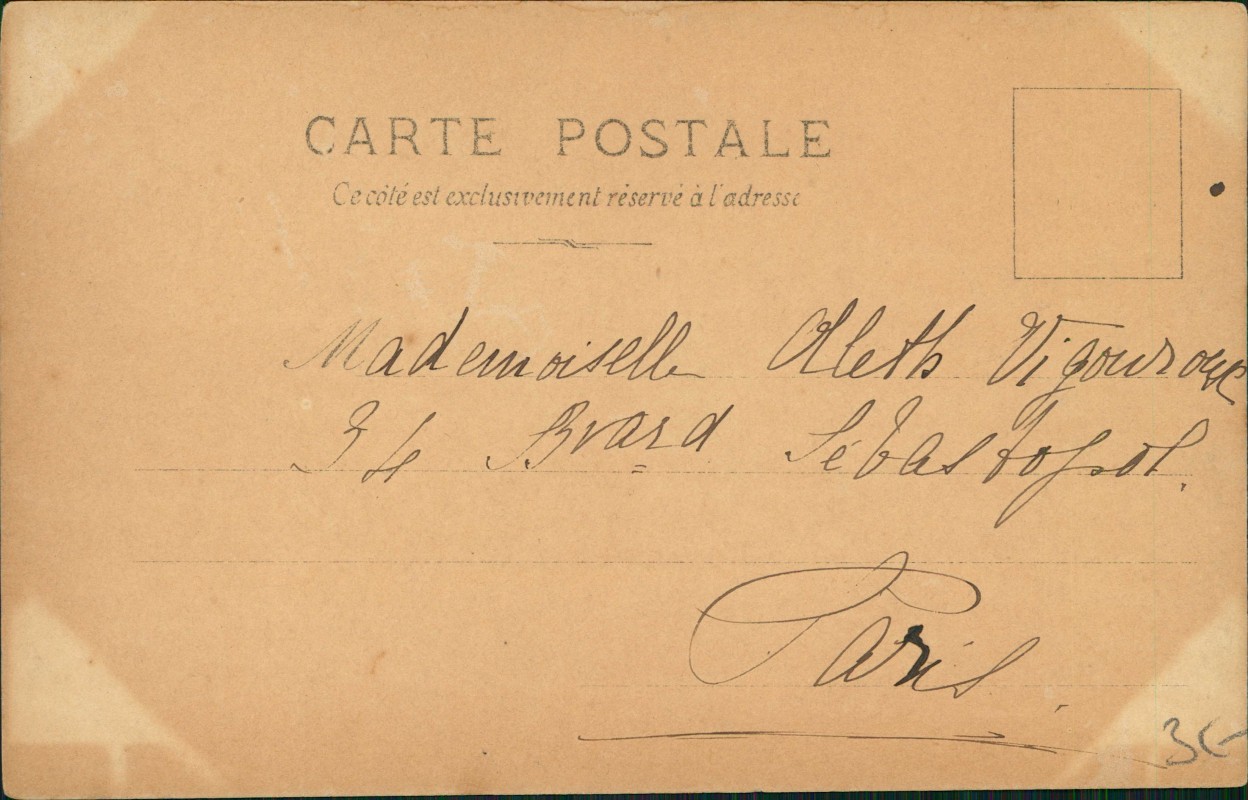 CARTE POSTALE
Ce côté est exclusivement réservé à l'adresse
Mademoiselle Aleth Vigouroux
34 Bvard Sébastopol.
Paris
3€